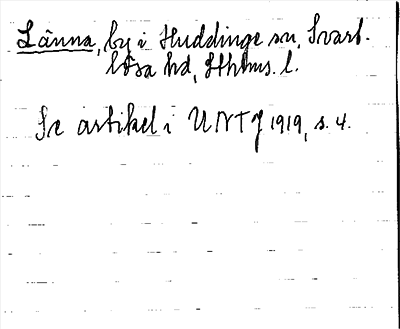 Länna, by i Huddinge sn, Svart-
lösa hd, Sthlms. l.
Se artikel i UNT 1919, s. 4.